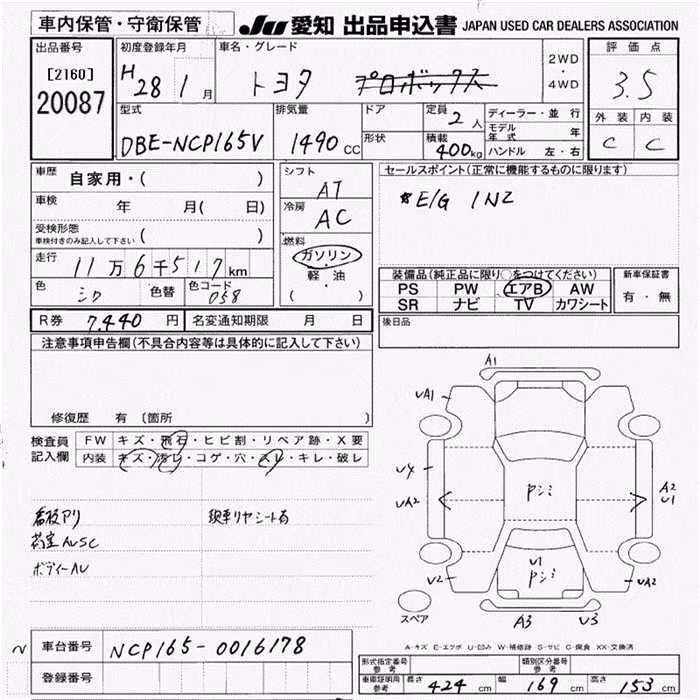 車内保管・守衛保管
JU 愛知 出品申込書 JAPAN USED CAR DEALERS ASSOCIATION
出品番号
[2160]
20087
初度登録年月
H 28 1 月
車名・グレード
トヨタ プロボックス
2WD
・
4WD
評価点
3.5
外装 内装
C C
型式
DBE-NCP165V
排気量
1490 CC
ドア
形状
定員
2 人
積載
400 kg
ディーラー・並行
モデル年式 年
ハンドル 左・右
車歴
自家用・( )
車検
年 月( 日)
受検形態
車検付きのみ記入して下さい ( )
走行
11万6千517km
色 シロ 色替 色コード 058
シフト
AT
冷房
AC
燃料
ガソリン
軽油
( )
セールスポイント(正常に機能するものに限ります)
* E/G 1NZ
装備品(純正品に限り○をつけてください)
PS PW エアB AW
SR ナビ TV カワシート
新車保証書
有・無
R券 7,440 円 名変通知期限 月 日
後日品
注意事項申告欄(不具合内容等は具体的に記入して下さい)
修復歴 有〔箇所
検査員
記入欄
FW キズ・飛石・ヒビ割・リペア跡・X要
内装 キズ・汚レ・コゲ・穴・スレ・キレ・破レ
看板アリ
荷室AUSC
ボディーAU
現車リヤシート有
A1
UA1
U4
UA2
U2
Pシミ
U1
Pシミ
A2
U1
UA2
A3
U3
スペア
A-キズ E-エクボ U-凹み W-補修跡 S-サビ C-腐食 XX-交換済
車台番号 NCP165-0016178
登録番号
形式指定番号
参考
類別区分番号
参考
車庫証明用
参考
長さ 424 cm 幅 169 cm 高さ 153 cm